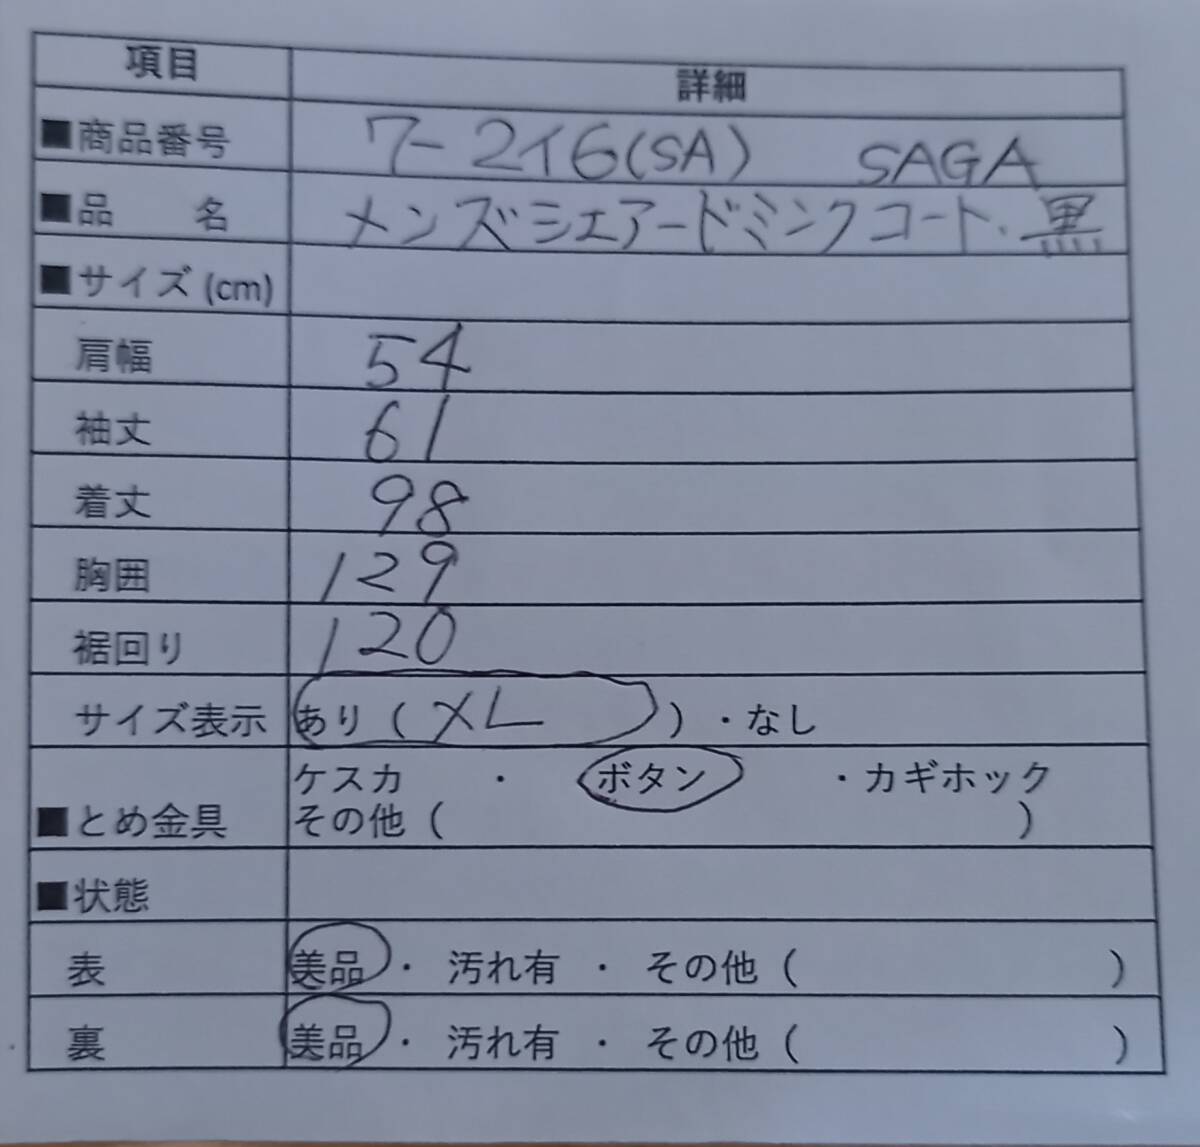 項目 詳細
■商品番号 7-216(SA) SAGA
■品 名 メンズシェアードミンクコート、黒
■サイズ(cm)
肩幅 54
袖丈 61
着丈 98
胸囲 129
裾回り 120
サイズ表示 あり ( XL ) ・なし
ケスカ ・ ボタン ・カギホック
■とめ金具 その他 ( )
■状態
表 美品 ・ 汚れ有 ・ その他 ( )
裏 美品 ・ 汚れ有 ・ その他 ( )